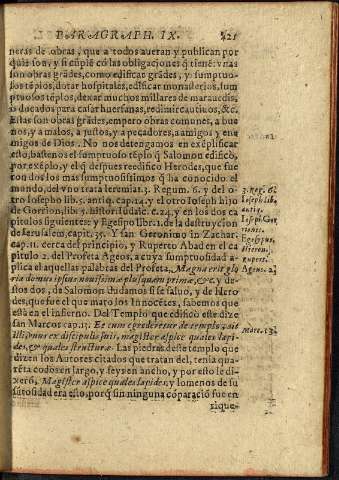 PARAGRAPH. IX. 421
neras de obras, que a todos aueran y publican por
quis son, y si cũplẽ cõ las obligaciones q̃ tienẽ: vnas
son obras grãdes, como edificar grãdes, y sumptuo-
sos tẽplos, dotar hospitales, edificar monasterios, sum
ptuosos tẽplos, dexar muchos millares de marauedis,
o ducados para casar huerfanas, redimir catiuos, &c.
Estas son obras grãdes, empero obras comunes, a bue
nos, y a malos, a justos, y a pecadores, a amigos y ene
migos de Dios. No nos detengamos en exẽplificar
esto, bastenos el sumptuoso tẽplo q̃ Salomon edifico,
por exẽplo, y el q̃ despues reedifico Herodes, que fue
ron dos los mas sumptuosissimos q̃ ha conocido el
mundo, del vno trata Ieremias. 3. Regum. 6. y del o-
tro Iosepho lib. 5. antiq. cap. 14. y el otro Ioseph hijo
de Gorrion, lib. 5. histor. Iudaic. c. 24. y en los dos ca
pitulos siguientes: y Egesipo lib. 1. de la destruycion
de Ierusalem, capit. 35. Y san Geronimo in Zachar.
cap. 11. cerca del principio, y Ruperto Abad en el ca
pitulo 2. del Profeta Ageos, a cuya sumptuosidad a-
plica el aquellas palabras del Profeta, Magna erit glo
ria domus istius nouissimæ plusquam primæ, &c. y de-
stos dos, de Salomon dudamos si se saluo, y de Hero
des, que fue el que mato los Innocẽtes, sabemos que
està en el infierno. Del Templo que edifico este dize
san Marcos cap. 13. Et cum egrederetur de templo, ait
illi vnus ex discipulis suis, magister aspice quales lapi-
des, & quales structuræ. Las piedras deste templo que
dizen los Autores citados que tratan del, tenia qua-
rẽta codos en largo, y seys en ancho, y por esto le di-
xerõ, Magister aspice quales lapides, y lo menos de su
sũtosidad era esto, porq̃ sin ninguna cõparaciõ fue en
rique-
3. reg. 6.
Ioseph lib.
antiq.
Iosep. Gor
rioni.
Egesippus.
Hieroni.
rupert.
Agens. 2.
Marc. 13.